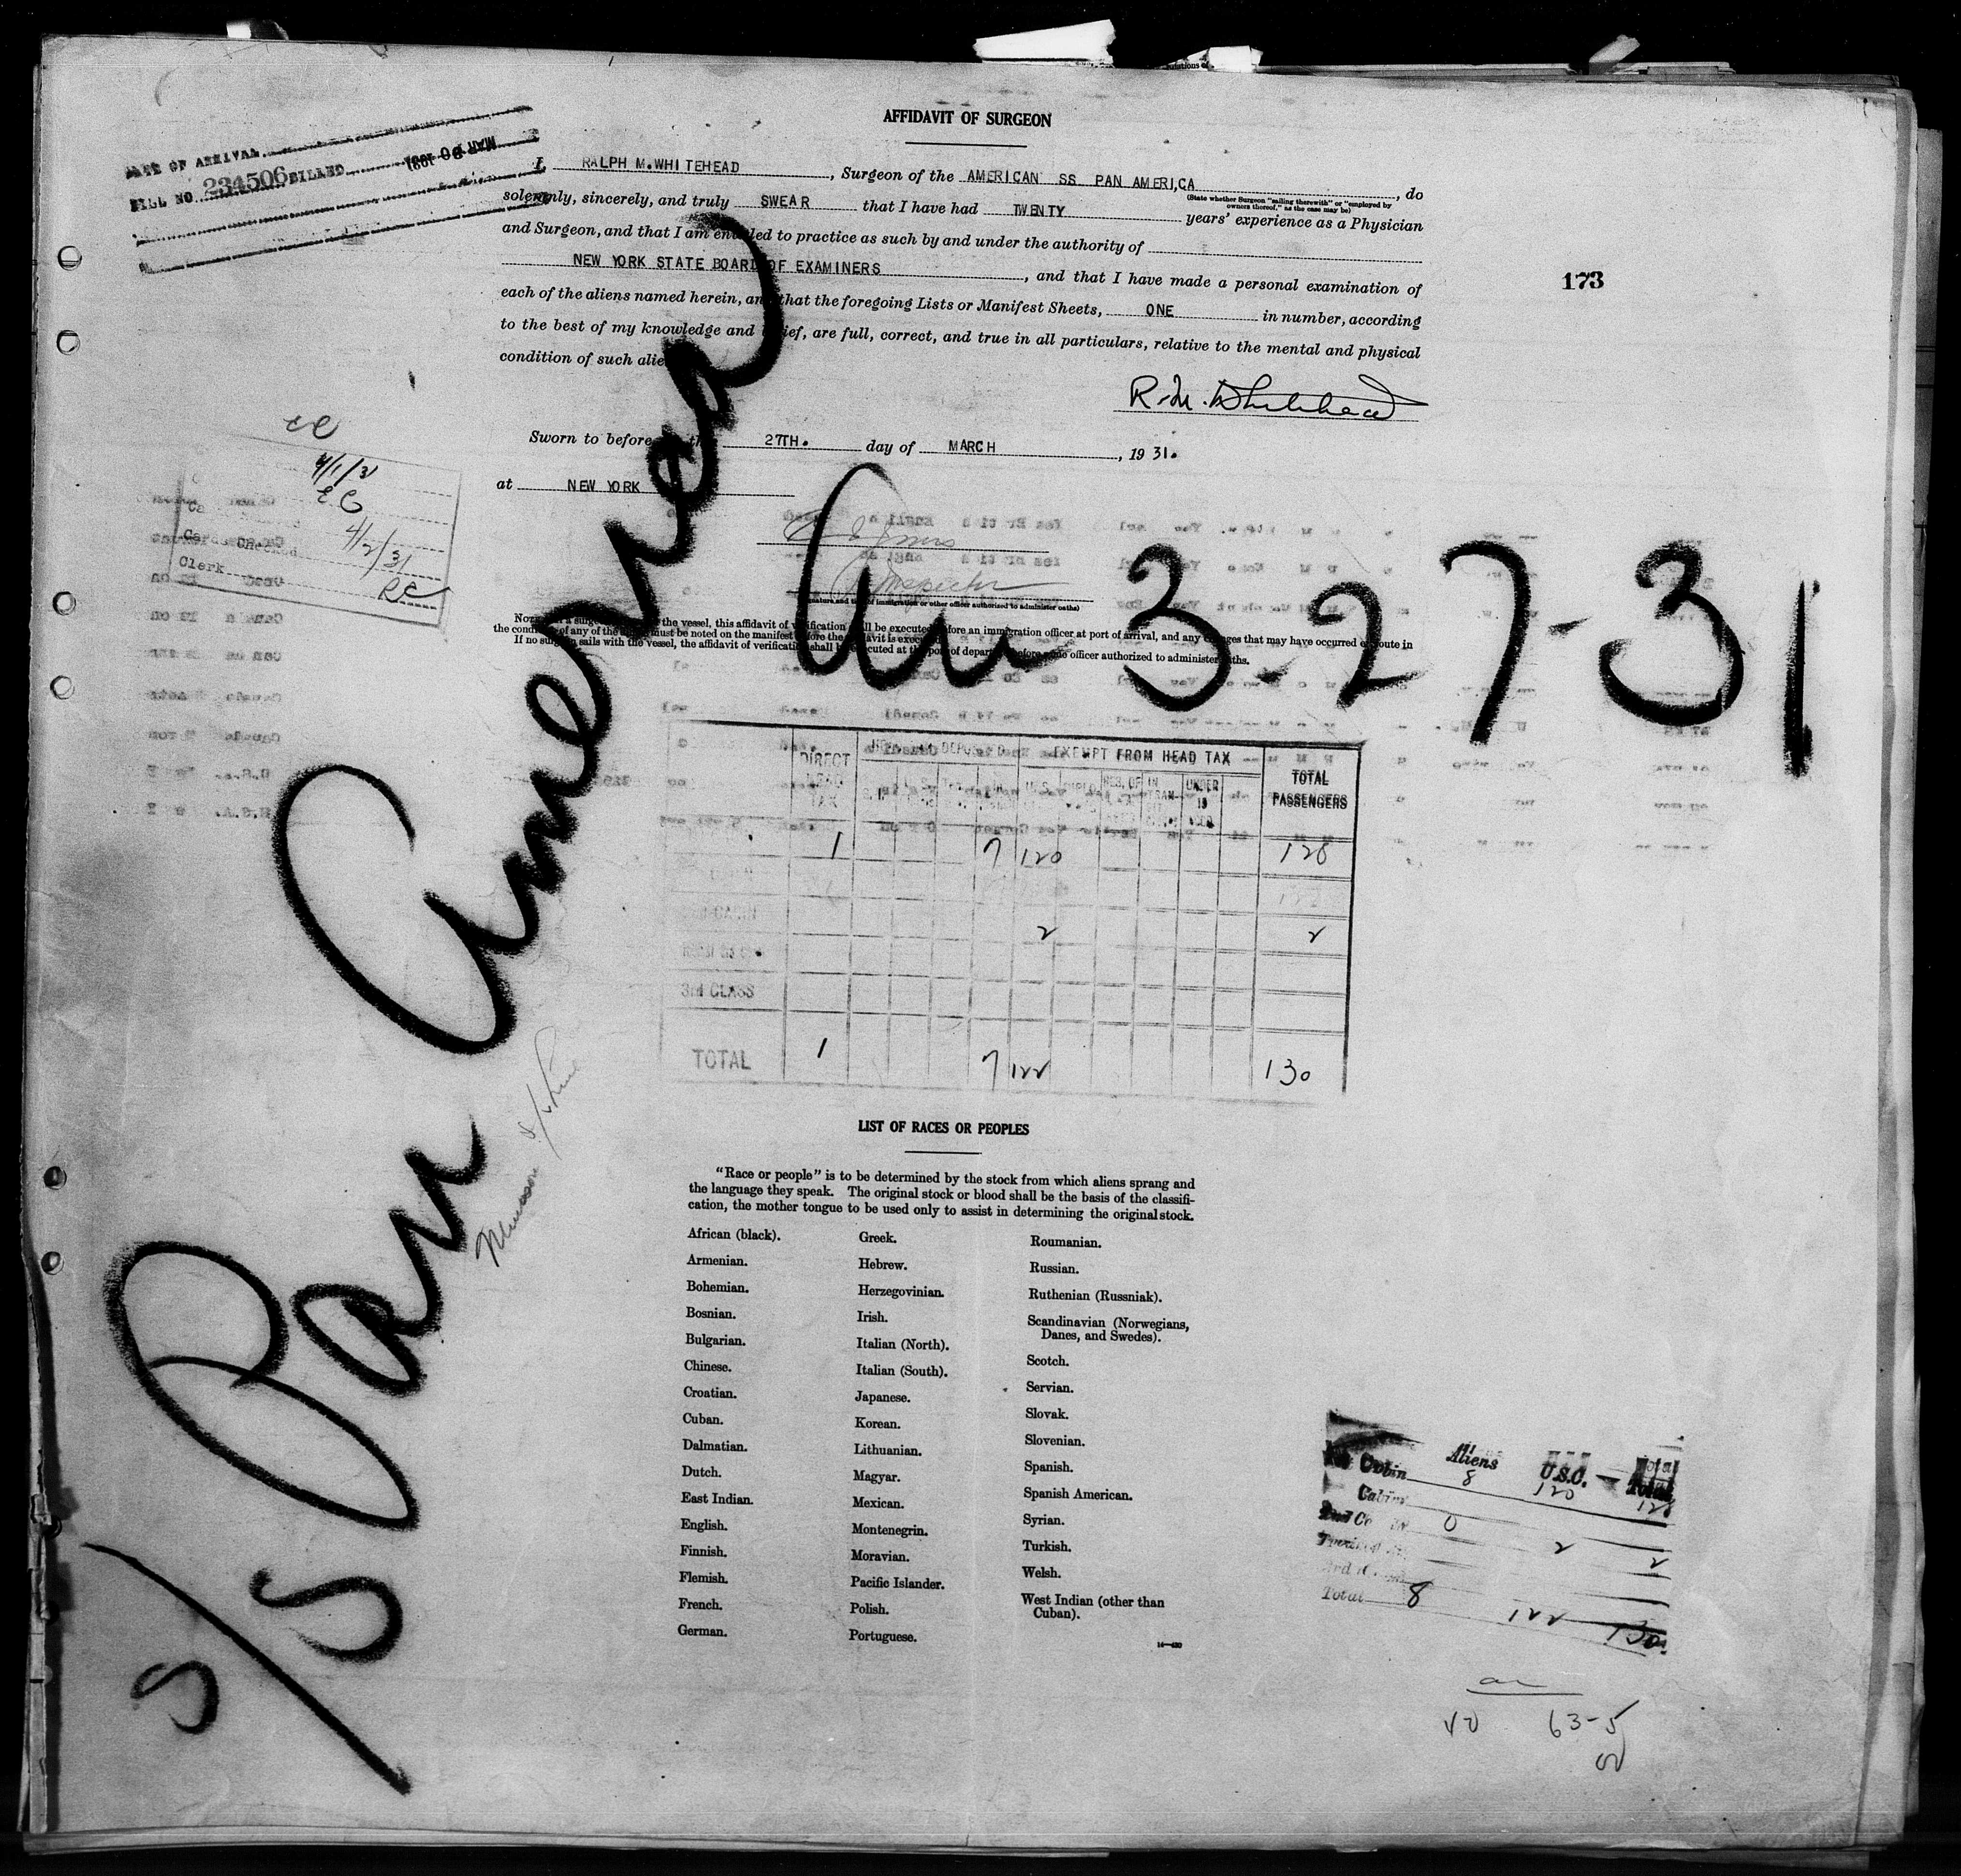 AFFIDAVIT OF SURGEON
DATE OF ARRIVAL
BILL NO. 234506 BILLED MAR 30 1931
I, RALPH M. WHITEHEAD, Surgeon of the AMERICAN SS PAN AMERICA, do
(State whether Surgeon "sailing therewith" or "employed by
owners thereof," as the case may be)
solemnly, sincerely, and truly SWEAR that I have had TWENTY years' experience as a Physician
and Surgeon, and that I am entitled to practice as such by and under the authority of
NEW YORK STATE BOARD OF EXAMINERS, and that I have made a personal examination of
each of the aliens named herein, and that the foregoing Lists or Manifest Sheets, ONE in number, according
to the best of my knowledge and belief, are full, correct, and true in all particulars, relative to the mental and physical
condition of such alie
173
R. M. Whitehead
Sworn to before 27TH. day of MARCH, 1931.
at NEW YORK
Inspector
(Signature and title of immigration or other officer authorized to administer oaths)
4/1/31
EG
4/2/31
Clerk RC
the vessel, this affidavit of verification shall be executed before an immigration officer at port of arrival, and any changes that may have occurred en route in
the condition of any of the must be noted on the manifest before the affidavit is executed
If no surgeon sails with the vessel, the affidavit of verification shall be executed at the port of departure before some officer authorized to administer oaths.
S/S Pan America
3-27-31
Munson S/S Line
DIRECT HEAD TAX EXEMPT FROM HEAD TAX TOTAL PASSENGERS
U.S. IN TRANSIT UNDER 16
1 7 120 128
2 2
3rd CLASS
TOTAL 1 7 122 130
LIST OF RACES OR PEOPLES
"Race or people" is to be determined by the stock from which aliens sprang and
the language they speak. The original stock or blood shall be the basis of the classifi-
cation, the mother tongue to be used only to assist in determining the original stock.
African (black).
Armenian.
Bohemian.
Bosnian.
Bulgarian.
Chinese.
Croatian.
Cuban.
Dalmatian.
Dutch.
East Indian.
English.
Finnish.
Flemish.
French.
German.
Greek.
Hebrew.
Herzegovinian.
Irish.
Italian (North).
Italian (South).
Japanese.
Korean.
Lithuanian.
Magyar.
Mexican.
Montenegrin.
Moravian.
Pacific Islander.
Polish.
Portuguese.
Roumanian.
Russian.
Ruthenian (Russniak).
Scandinavian (Norwegians,
Danes, and Swedes).
Scotch.
Servian.
Slovak.
Slovenian.
Spanish.
Spanish American.
Syrian.
Turkish.
Welsh.
West Indian (other than
Cuban).
Aliens U.S.C. Total
Cabin 8 120 128
Cabin
0 2 2
Total 8 122 130
63-5